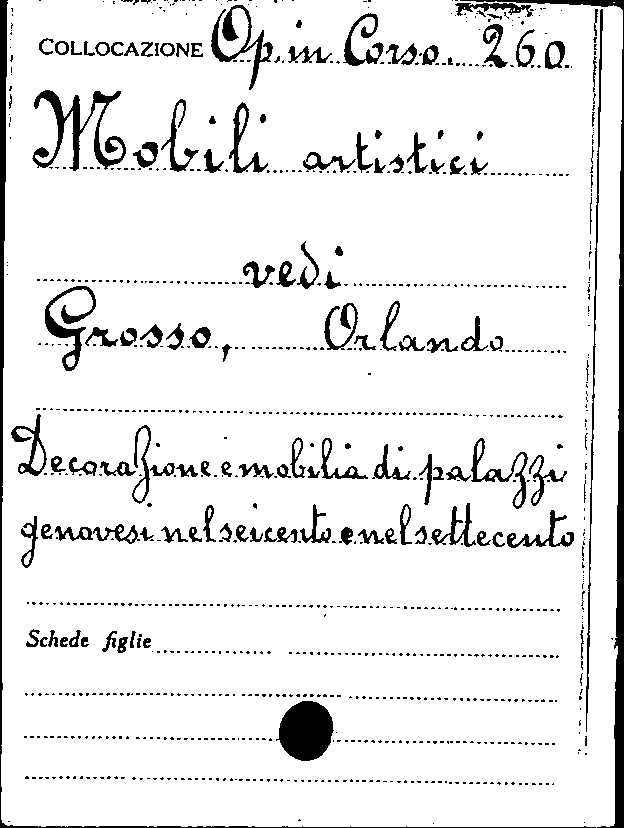 COLLOCAZIONE Op. in Corso. 260
Mobili artistici
vedi
Grosso, Orlando
Decorazione e mobilia di palazzi
genovesi nel seicento e nel settecento
Schede figlie